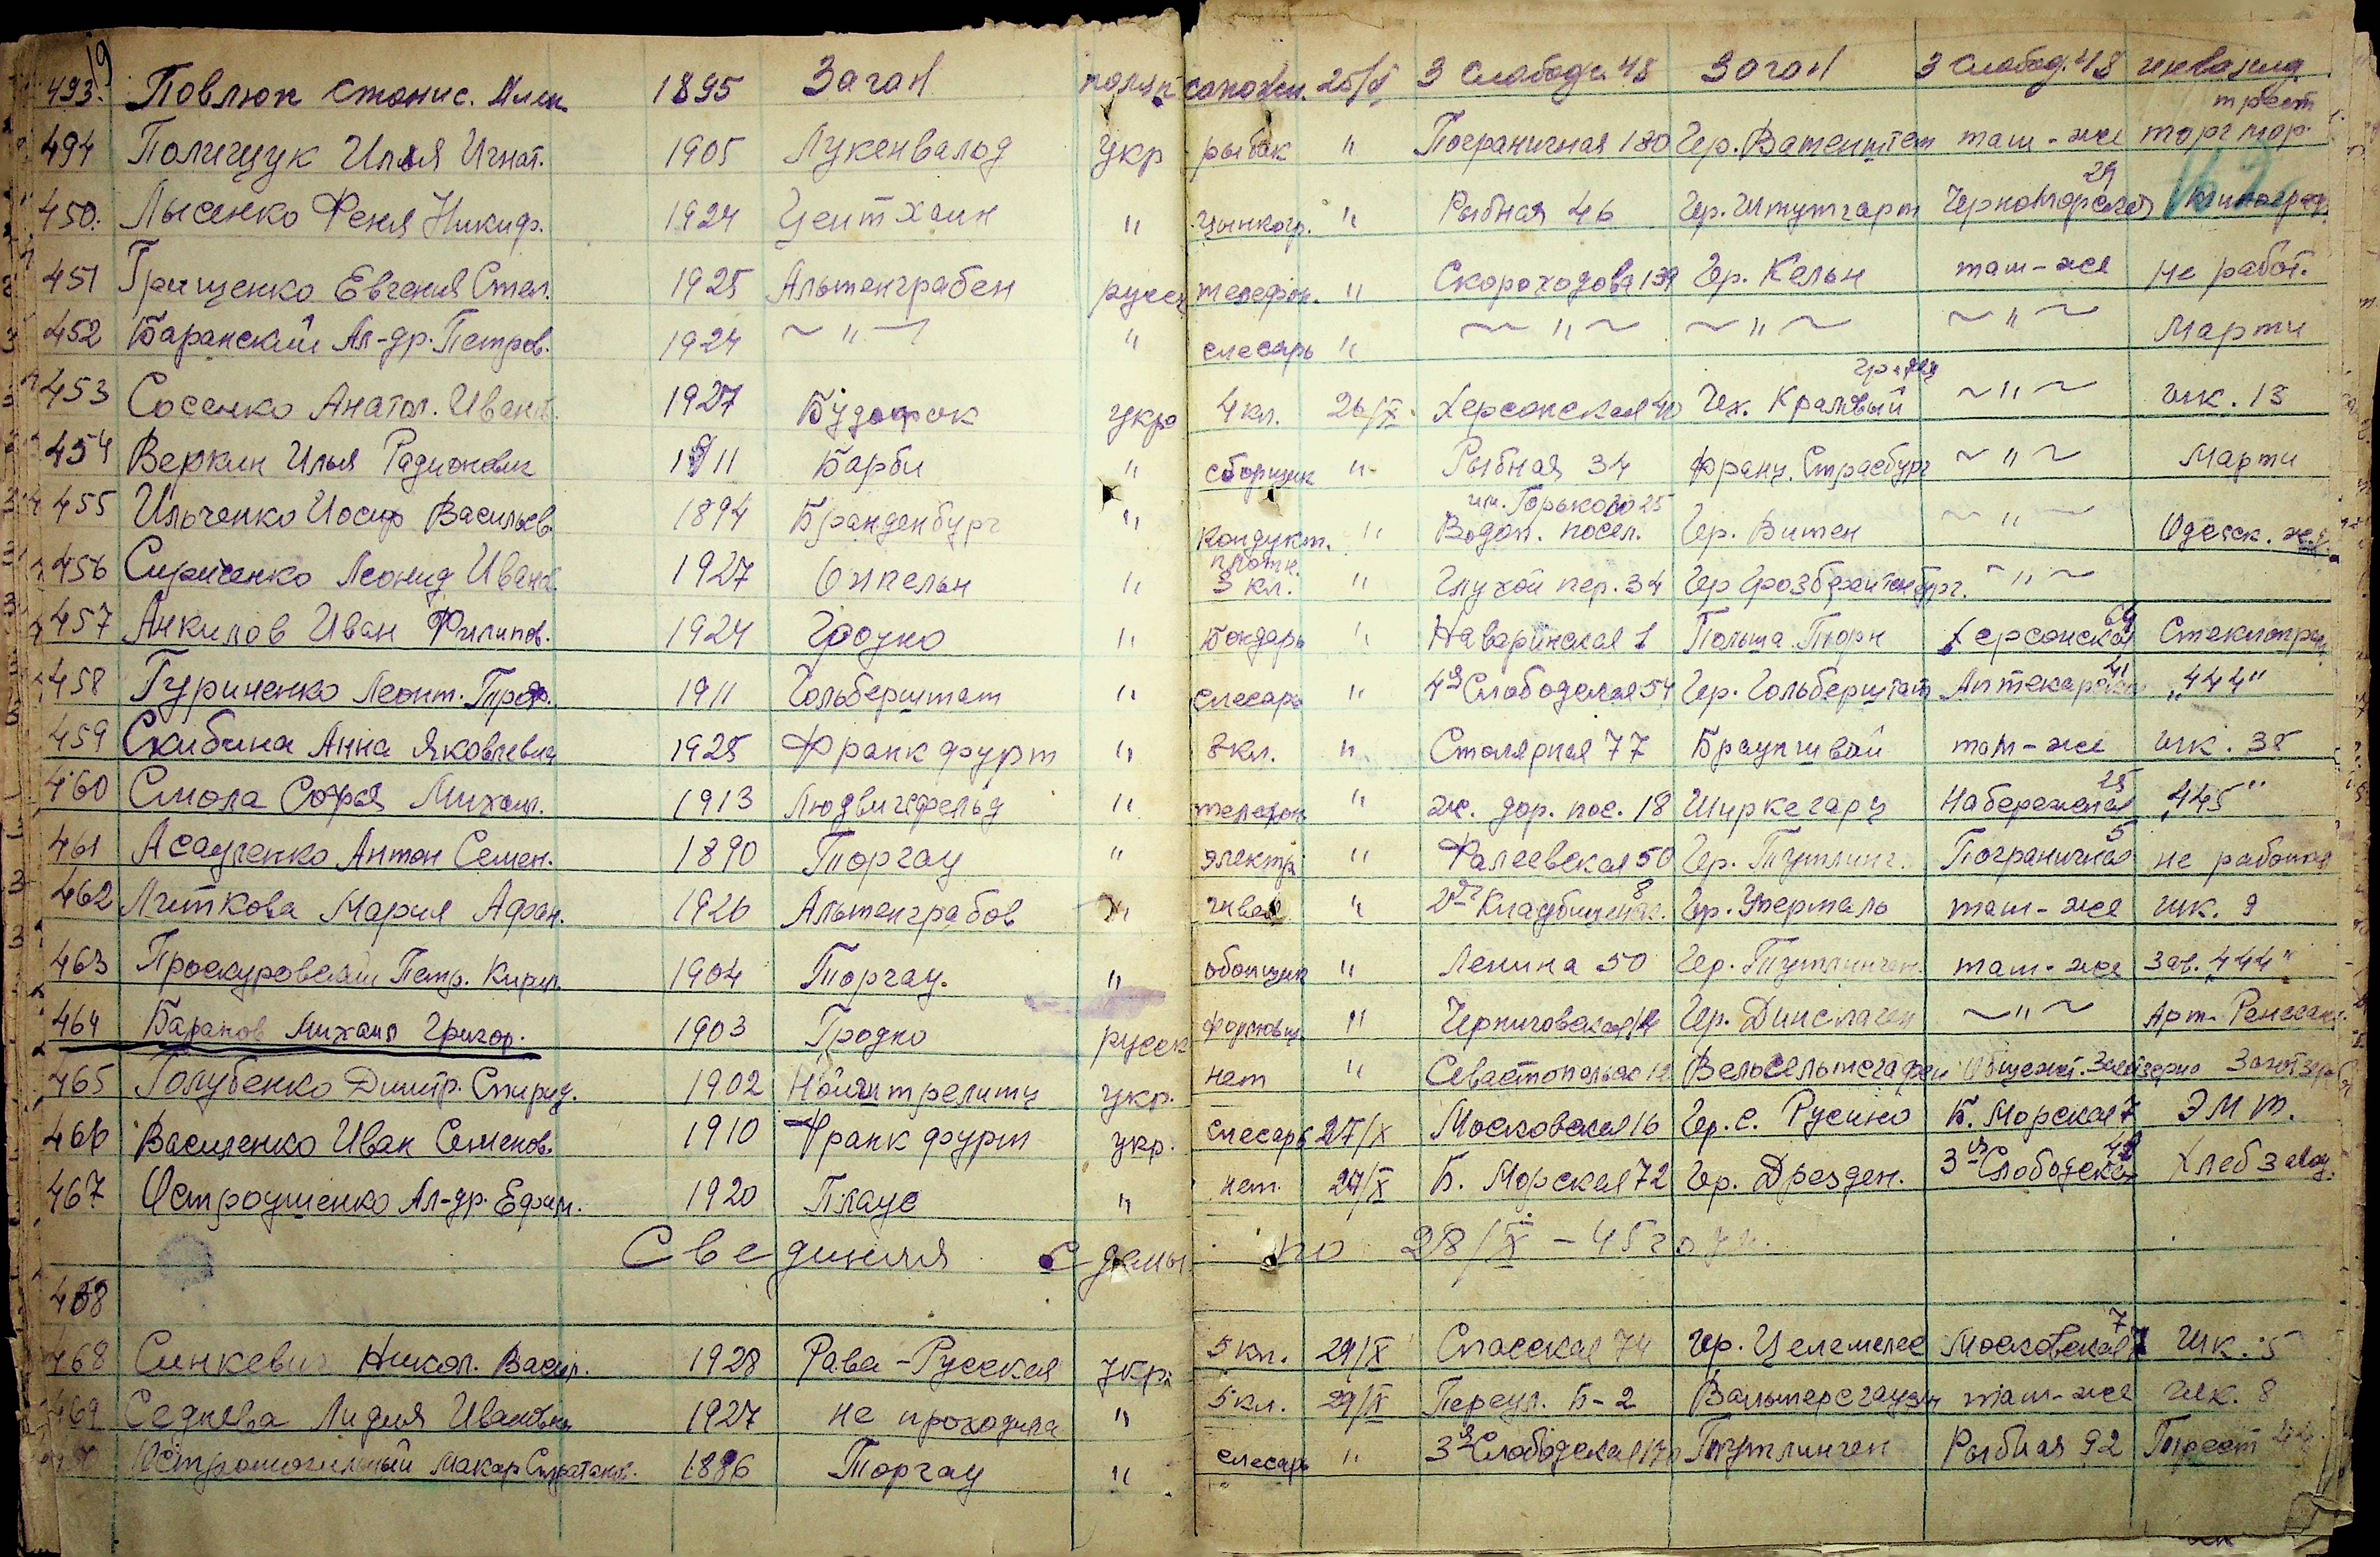 19
493. Повлюк Станис. 1895 Заган поляк сапожн. 25/X 3 Слободс. 48 Заган 3 Слобод. 48 инвалид
494 Полищук Илья Игнат. 1905 Лукенвальд укр рыбак " Пограничная 180 Гер. Ватенштет там-же трест торг мор.
450. Лысенко Феня Никиф. 1924 Цейтхаин " цынкогр. " Рыбная 46 Гер. Штутгарт Черноморская 29
451 Грищенко Евгения Степ. 1925 Альтенграбен русск телефон. " Скороходова 139 Гер. Кельн там-же не работ.
452 Баранский Ал-др. Петров. 1924 ~ " ~ " слесарь " ~ " ~ ~ " ~ ~ " ~ Марти
453 Сосенко Анатол. Иван. 1927 укр 4 кл. 26/X. Херсонская 40 Чех. ~ " ~ шк. 13
454 Веркин Илья Радионович 1911 Барби " сборщик " Рыбная 34 Франц. Страсбург ~ " ~ Марти
455 Ильченко Иосиф Васильев 1894 Бранденбург " кондукт. " Водоп. посел. им. Горького 25 Гер. Витен ~ " ~ Одесск. ж.д.
456 Сириченко Леонид Иван 1927 Оппельн " плотн. 3 кл. " Глухой пер. 34 Гер ~ " ~
457 Анкилов Иван Филипов. 1924 Гродно " бондарь " Наваринская 1 Польша Торн Херсонская 69
458 Гуриненко Леонт. Троф. 1911 Гольберштат " слесарь " 4я Слободская 54 Гер. Гольберштат Аптекарская 41 „444"
459 Скибина Анна Яковлевна 1925 Франкфурт " 8 кл. " Столярная 77 Брауншвай там-же шк. 38
460 Смола Софья Михаил. 1913 Людвигсфельд " телефон " ж. дор. пос. 18 Набережная 25 „445"
461 Асауленко Антон Семен. 1890 Торгау " электр " Фалеевская 50 Гер. Тутлинг. Пограничная 5 не работает
462 Литкова Мария Афан. 1926 Альтенграбов " швея " 2ая Кладбищенск. 8 Гер. Уперталь там-же шк. 9
463 Проскуровский Петр. Кирил. 1904 Торгау. " обойщик " Ленина 50 Гер. Тутлинген. там-же зав. „444"
464 Баранов Михаил Григор. 1903 Гродно русск формовщ. " Черниговская 12 Гер. Динслакен ~ " ~ Арт.
465 Голубенко Дмитр. Спирид. 1902 Нойштрелитц укр. нет " Севастопольск 12 Общежит. Заготзерно Заготзерно
466 Василенко Иван Семенов. 1910 Франкфурт укр. слесарь 27/X Московская 16 Гер. с. Русино Б. Морская 7 ЭМТ.
467 Остроушенко Ал-др. Ефим. 1920 Плауе " нет. 27/X Б. Морская 72 Гер. Дрезден. 3я Слободская 48 Хлебзавод.
Свединия сданы по 28/X – 45 года.
468
468 Синкевич Никол. Васил. 1928 Рава-Русская укр. 5 кл. 29/X Спасская 74 Гер. Московская 7 шк. 5
469 Седнева Лидия Ивановна 1927 не проходила " 5 кл. 29/X Переул. Б-2 Вальтерсгаузен там-же шк. 8
Макар 1886 Торгау " слесарь " 3я Слободская Тутлинген Рыбная 92 Трест